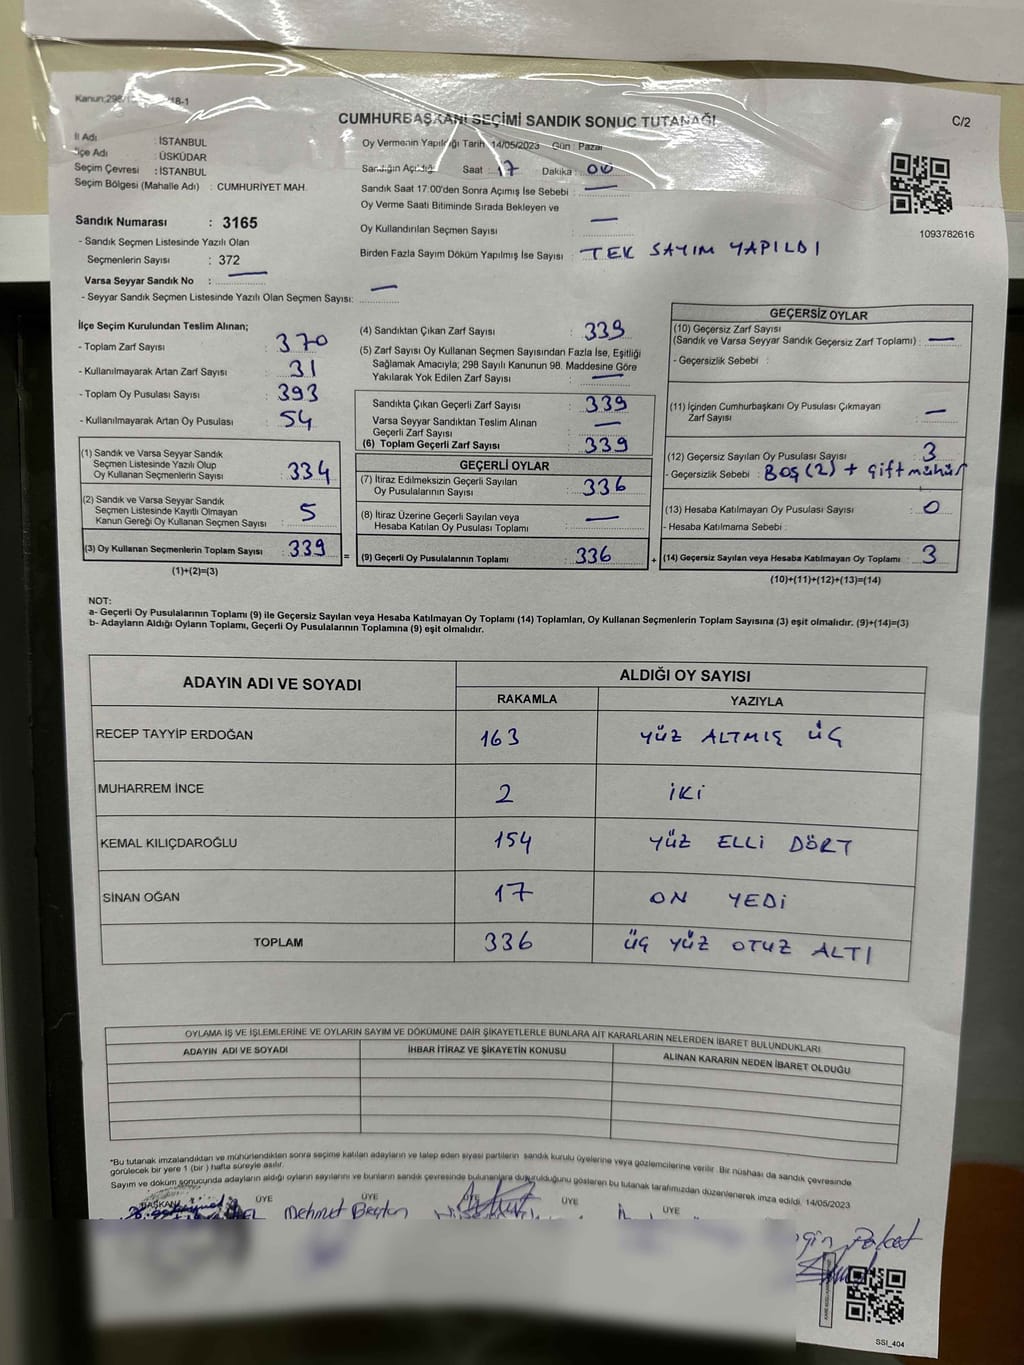 Kanun:298/ 18-1
CUMHURBAŞKANI SEÇİMİ SANDIK SONUÇ TUTANAĞI
C/2
İl Adı : İSTANBUL
İlçe Adı : ÜSKÜDAR
Seçim Çevresi : İSTANBUL
Seçim Bölgesi (Mahalle Adı) : CUMHURİYET MAH.
Oy Vermenin Yapıldığı Tarih 14/05/2023 Gün Pazar
Sandığın Açıldığı Saat 17 Dakika : 00
Sandık Saat 17:00'den Sonra Açımış İse Sebebi : —
Oy Verme Saati Bitiminde Sırada Bekleyen ve
Oy Kullandırılan Seçmen Sayısı : —
Birden Fazla Sayım Döküm Yapılmış İse Sayısı : TEK SAYIM YAPILDI
1093782616
Sandık Numarası : 3165
- Sandık Seçmen Listesinde Yazılı Olan
Seçmenlerin Sayısı : 372
Varsa Seyyar Sandık No : —
- Seyyar Sandık Seçmen Listesinde Yazılı Olan Seçmen Sayısı: —
İlçe Seçim Kurulundan Teslim Alınan;
- Toplam Zarf Sayısı : 370
- Kullanılmayarak Artan Zarf Sayısı : 31
- Toplam Oy Pusulası Sayısı : 393
- Kullanılmayarak Artan Oy Pusulası : 54
(1) Sandık ve Varsa Seyyar Sandık
Seçmen Listesinde Yazılı Olup
Oy Kullanan Seçmenlerin Sayısı : 334
(2) Sandık ve Varsa Seyyar Sandık
Seçmen Listesinde Kayıtlı Olmayan
Kanun Gereği Oy Kullanan Seçmen Sayısı : 5
(3) Oy Kullanan Seçmenlerin Toplam Sayısı : 339
(1)+(2)=(3)
=
(4) Sandıktan Çıkan Zarf Sayısı : 339
(5) Zarf Sayısı Oy Kullanan Seçmen Sayısından Fazla İse, Eşitliği
Sağlamak Amacıyla; 298 Sayılı Kanunun 98. Maddesine Göre
Yakılarak Yok Edilen Zarf Sayısı : —
Sandıkta Çıkan Geçerli Zarf Sayısı : 339
Varsa Seyyar Sandıktan Teslim Alınan
Geçerli Zarf Sayısı : —
(6) Toplam Geçerli Zarf Sayısı : 339
GEÇERLİ OYLAR
(7) İtiraz Edilmeksizin Geçerli Sayılan
Oy Pusulalarının Sayısı : 336
(8) İtiraz Üzerine Geçerli Sayılan veya
Hesaba Katılan Oy Pusulası Toplamı : —
(9) Geçerli Oy Pusulalarının Toplamı : 336
+
GEÇERSİZ OYLAR
(10) Geçersiz Zarf Sayısı
(Sandık ve Varsa Seyyar Sandık Geçersiz Zarf Toplamı) : —
- Geçersizlik Sebebi :
(11) İçinden Cumhurbaşkanı Oy Pusulası Çıkmayan
Zarf Sayısı : —
(12) Geçersiz Sayılan Oy Pusulası Sayısı : 3
- Geçersizlik Sebebi : BOŞ (2) + çift mühür
(13) Hesaba Katılmayan Oy Pusulası Sayısı : 0
- Hesaba Katılmama Sebebi :
(14) Geçersiz Sayılan veya Hesaba Katılmayan Oy Toplamı : 3
(10)+(11)+(12)+(13)=(14)
NOT:
a- Geçerli Oy Pusulalarının Toplamı (9) ile Geçersiz Sayılan veya Hesaba Katılmayan Oy Toplamı (14) Toplamları, Oy Kullanan Seçmenlerin Toplam Sayısına (3) eşit olmalıdır. (9)+(14)=(3)
b- Adayların Aldığı Oyların Toplamı, Geçerli Oy Pusulalarının Toplamına (9) eşit olmalıdır.
ADAYIN ADI VE SOYADI
ALDIĞI OY SAYISI
RAKAMLA YAZIYLA
RECEP TAYYİP ERDOĞAN 163 YÜZ ALTMIŞ ÜÇ
MUHARREM İNCE 2 İKİ
KEMAL KILIÇDAROĞLU 154 YÜZ ELLİ DÖRT
SİNAN OĞAN 17 ON YEDİ
TOPLAM 336 ÜÇ YÜZ OTUZ ALTI
OYLAMA İŞ VE İŞLEMLERİNE VE OYLARIN SAYIM VE DÖKÜMÜNE DAİR ŞİKAYETLERLE BUNLARA AİT KARARLARIN NELERDEN İBARET BULUNDUKLARI
ADAYIN ADI VE SOYADI İHBAR İTİRAZ VE ŞİKAYETİN KONUSU ALINAN KARARIN NEDEN İBARET OLDUĞU
*Bu tutanak imzalandıktan ve mühürlendikten sonra seçime katılan adayların ve talep eden siyasi partilerin sandık kurulu üyelerine veya gözlemcilerine verilir. Bir nüshası da sandık çevresinde
görülecek bir yere 1 (bir) hafta süreyle asılır.
Sayım ve döküm sonucunda adayların aldığı oyların sayılarını ve bunların sandık çevresinde bulunanlara duyurulduğunu gösteren bu tutanak tarafımızdan düzenlenerek imza edildi. 14/05/2023
BAŞKAN ÜYE ÜYE ÜYE ÜYE ÜYE
Mehmut
SSI_404